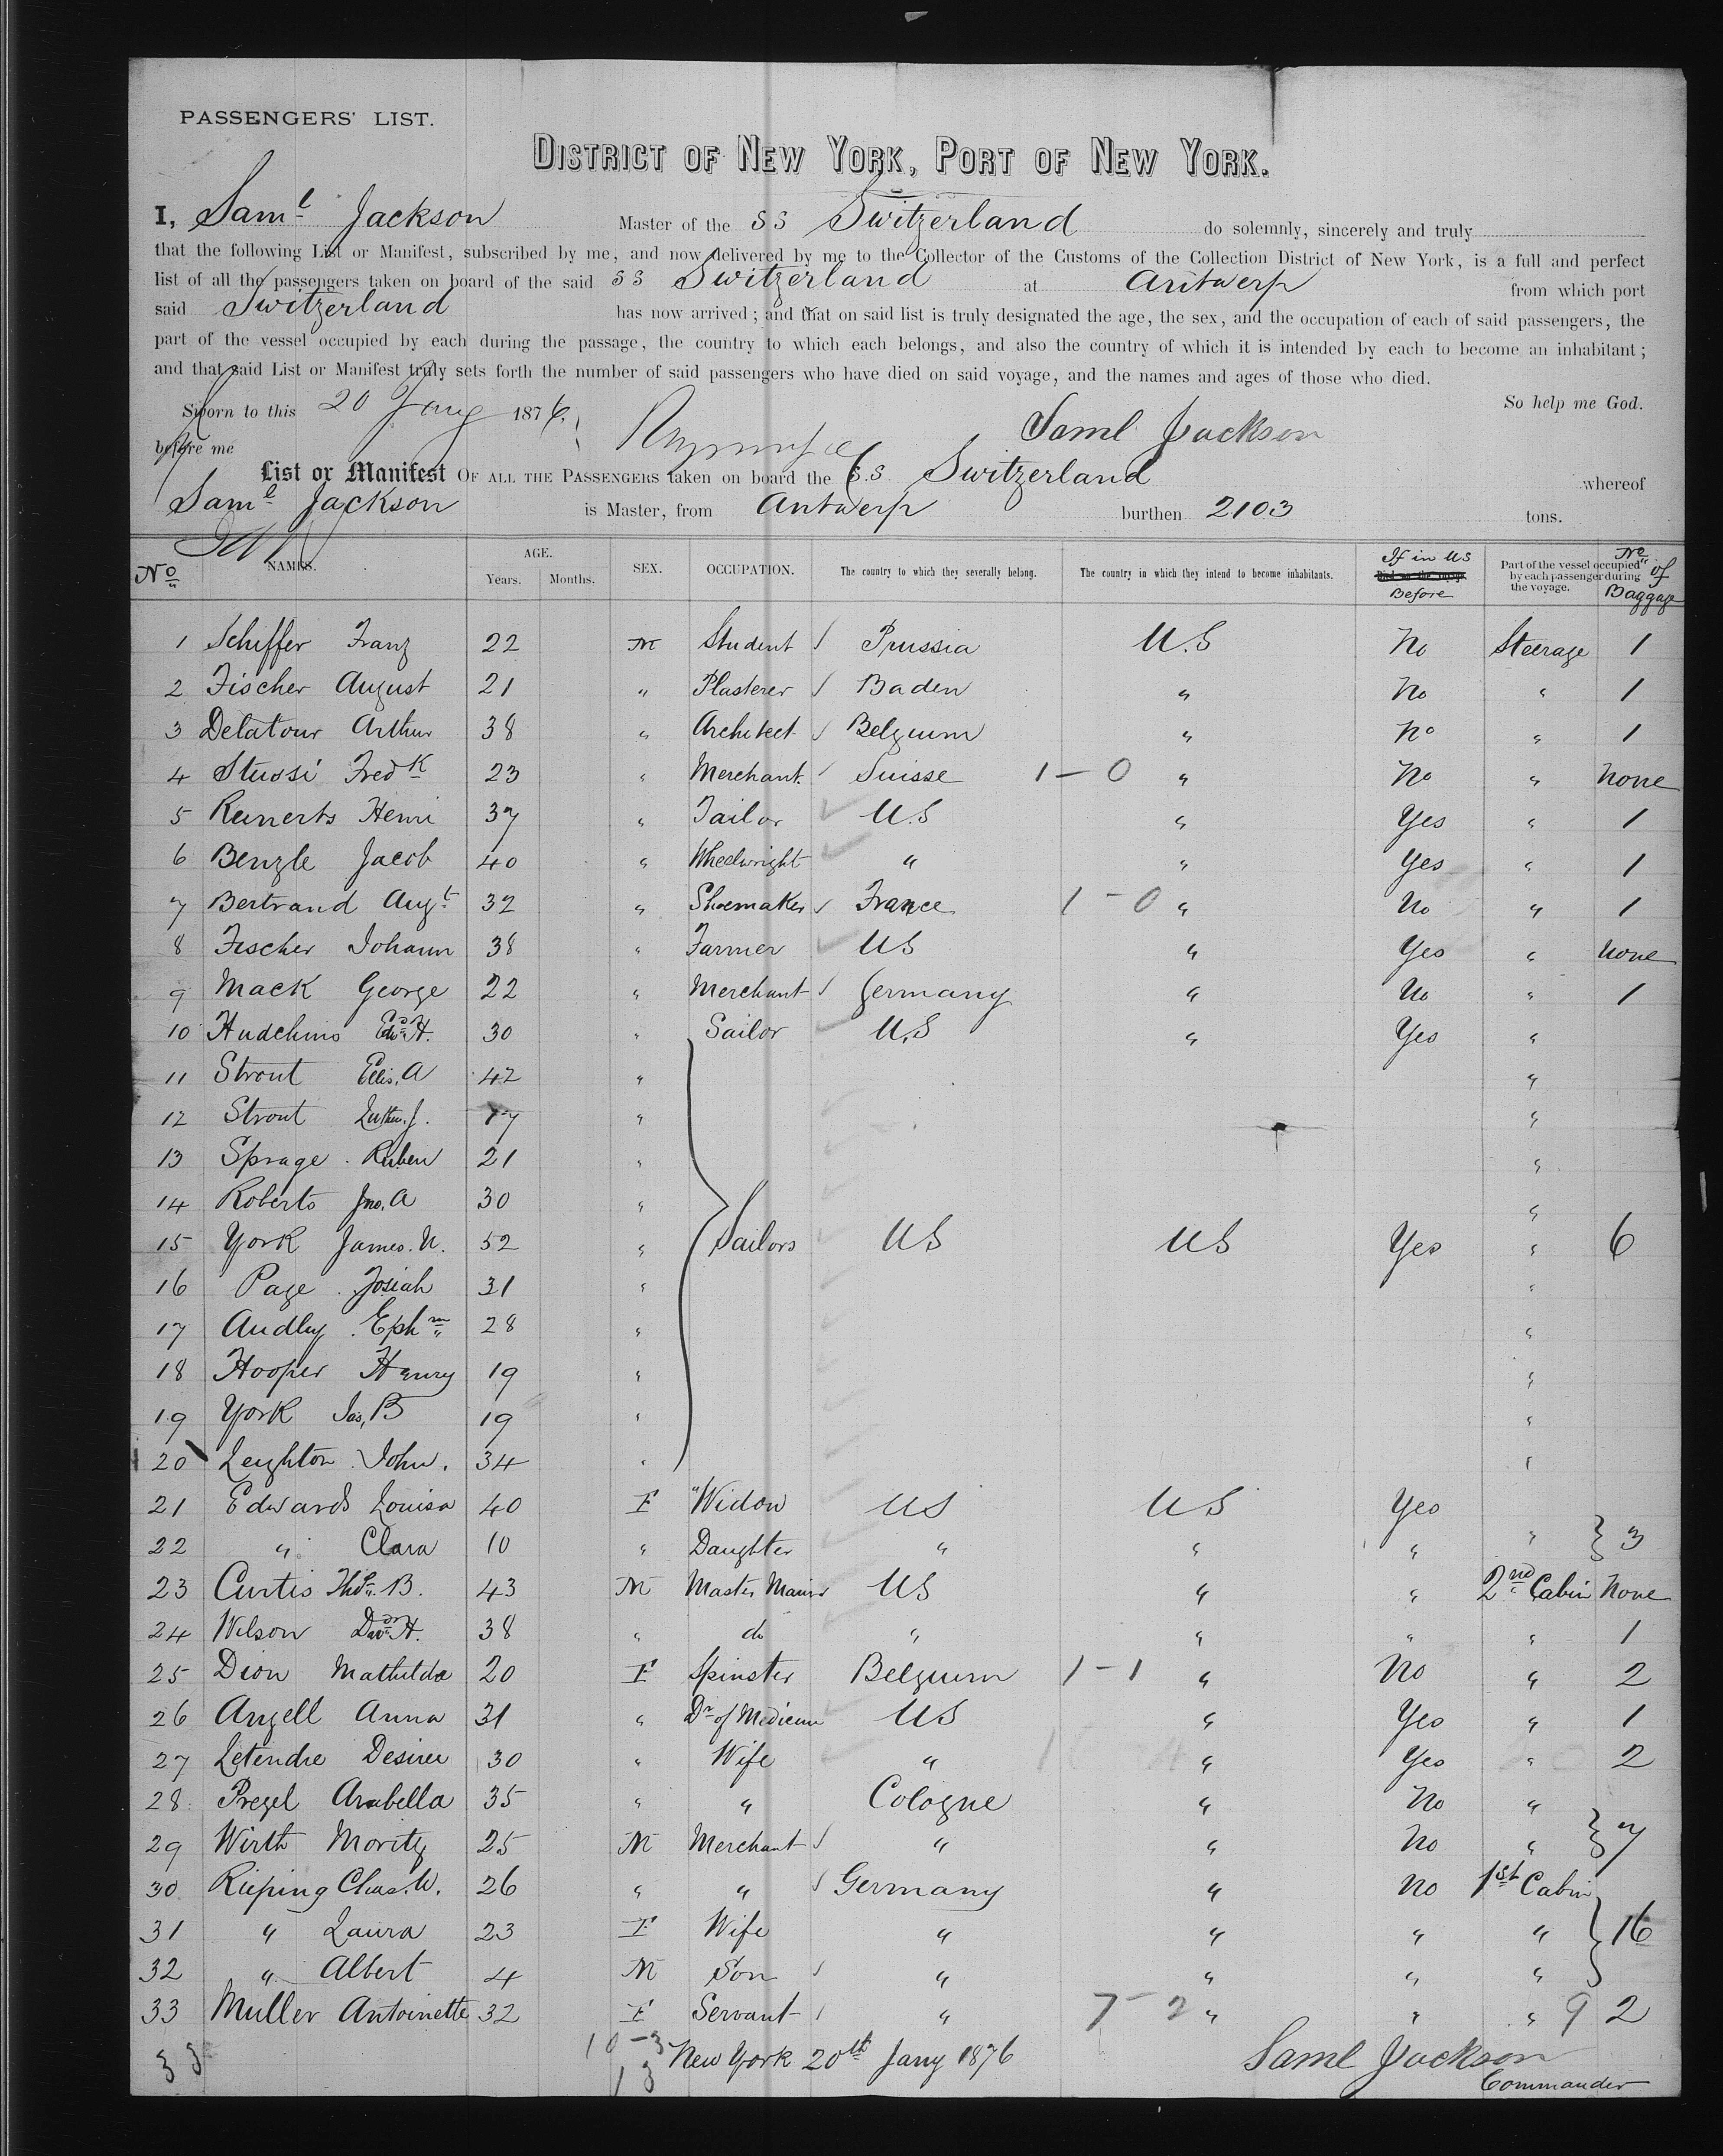 PASSENGERS' LIST.
DISTRICT OF NEW YORK, PORT OF NEW YORK.
I, Saml Jackson Master of the SS Switzerland do solemnly, sincerely and truly
that the following List or Manifest, subscribed by me, and now delivered by me to the Collector of the Customs of the Collection District of New York, is a full and perfect
list of all the passengers taken on board of the said SS Switzerland at Antwerp from which port
said Switzerland has now arrived; and that on said list is truly designated the age, the sex, and the occupation of each of said passengers, the
part of the vessel occupied by each during the passage, the country to which each belongs, and also the country of which it is intended by each to become an inhabitant;
and that said List or Manifest truly sets forth the number of said passengers who have died on said voyage, and the names and ages of those who died.
So help me God.
Sworn to this 20 Jany 1876.
before me
Saml Jackson
List or Manifest OF ALL THE PASSENGERS taken on board the S.S Switzerland whereof
Saml Jackson is Master, from Antwerp burthen 2103 tons.
No NAMES. AGE. Years. Months. SEX. OCCUPATION. The country to which they severally belong. The country in which they intend to become inhabitants. If in US Before Part of the vessel occupied by each passenger during the voyage. No of Baggage
1 Schiffer Franz 22 M Student Prussia U.S No Steerage 1
2 Fischer August 21 " Plasterer Baden " No " 1
3 Delatour Arthur 38 " Architect Belgium " No " 1
4 Stussi Fredk 23 " Merchant. Suisse 1-0 " No " None
5 Reinerts Henri 37 " Tailor U.S " Yes " 1
6 Benzle Jacob 40 " Wheelwright " " Yes " 1
7 Bertrand Augt 32 " Shoemaker France 1-0 " No " 1
8 Fischer Johann 38 " Farmer US " Yes " None
9 Mack George 22 " Merchant Germany " No " 1
10 Hudchins Edwd H. 30 " Sailor U.S " Yes "
11 Strout Ellis. A 42 " "
12 Strout Luther. J. 17 " "
13 Sprage Ruben 21 " "
14 Roberts Jno. A 30 " "
15 York James. N. 52 " Sailors US US Yes " 6
16 Page Josiah 31 " "
17 Audley Ephm 28 " "
18 Hooper Henry 19 " "
19 York Jas, B 19 " "
20 Leighton John. 34 " "
21 Edwards Louisa 40 F Widow US US Yes
22 " Clara 10 " Daughter " " " " 3
23 Curtis Thos B. 43 M Master Marinr US " " 2nd Cabin None
24 Wilson Davd H. 38 " do " " " " 1
25 Dion Mathilda 20 F Spinster Belgium 1-1 " No " 2
26 Angell Anna 31 " Dr of Medicine US " Yes " 1
27 Letendre Desiree 30 " Wife " " Yes " 2
28 Pregel Arabella 35 " " Cologne " No "
29 Wirth Moritz 25 M Merchant " " No " 7
30 Rieping Chas. W. 26 " " Germany " No 1st Cabin
31 " Laura 23 F Wife " " " " 16
32 " Albert 4 M Son " " " "
33 Muller Antoinette 32 F Servant " 7-2 " " " 9 2
33 10-3 New York 20th Jany 1876 Saml Jackson
13 Commander